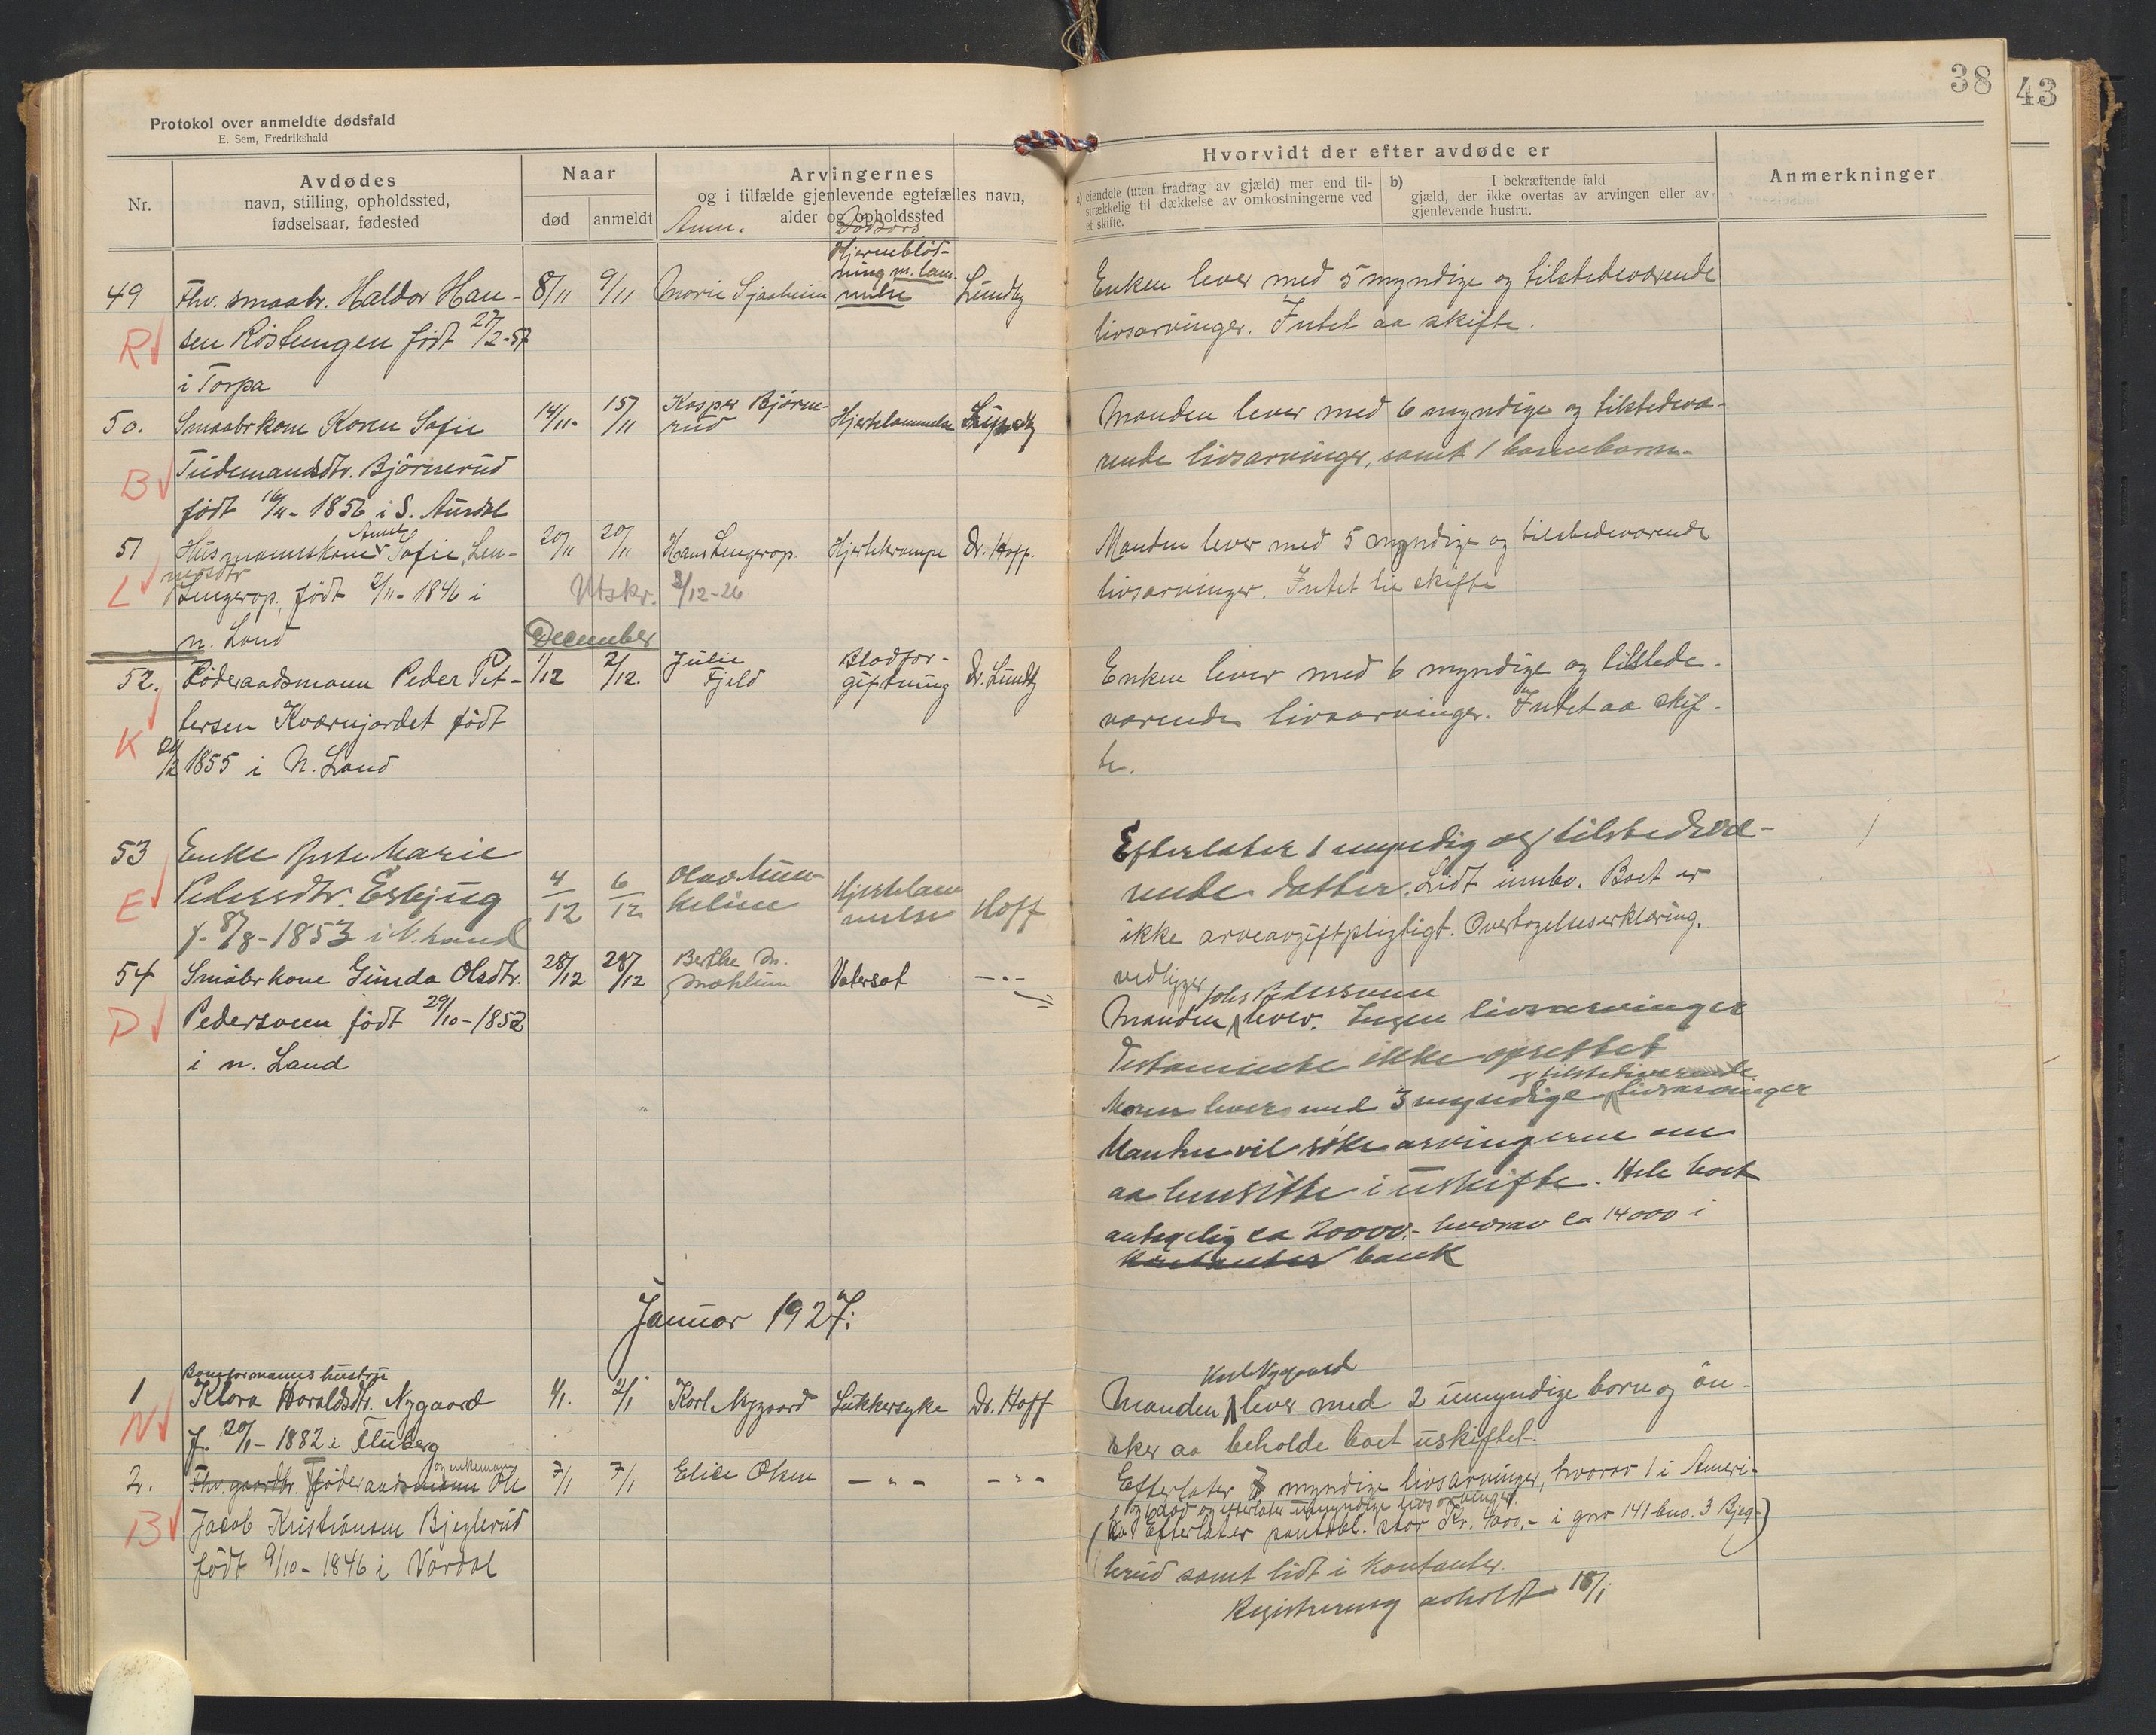 38
43
Protokol over anmeldte dødsfald
E. Sem, Fredrikshald
Nr.
Avdødes
navn, stilling, opholdssted,
fødselsaar, fødested
Naar
død
anmeldt
Arvingernes
og i tilfælde gjenlevende egtefælles navn,
alder og opholdssted
Anm.
Dødsors
Hvorvidt der efter avdøde er
a) eiendele (uten fradrag av gjæld) mer end til-
strækkelig til dækkelse av omkostningerne ved
et skifte.
b) I bekræftende fald
gjæld, der ikke overtas av arvingen eller av
gjenlevende hustru.
Anmerkninger
49 Fhv. smaabr. Haldor Han- 8/11 9/11 Marie Sjaaheim Hjerneblød-
ning m. lam-
melse Lundby
R sen Röstungen født 27/2-57
i Torpa
Enken lever med 5 myndige og tilstedeværende
livsarvinger. Intet aa skifte.
50. Smaabrkone Karen Sofie 14/11- 15/11 Kasper Björne-
rud Hjertelammelse Lundby
B Tidemandsdtr. Björnerud
født 16/11- 1856 i S. Aurdal
Manden lever med 6 myndige og tilstedevæ-
rende livsarvinger, samt 1 barnebarn.
51 Husmannskone Anne Sofie Len- 20/11 20/11 Hans Lengerop. Hjertekrampe Dr. Hoff.
L Lengerop, født 2/11- 1846 i Utskr. 3/12-26
n. Land
Manden lever med 5 myndige og tilstedeværende
livsarvinger. Intet til skifte
December
52. Föderaadsmann Peder Pet- 1/12 2/12. Julie
Fjeld Blodfor-
giftning Dr. Lundby
K tersen Kværnjordet født
1855 i N. Land
Enken lever med 6 myndige og tilstede-
værende livsarvinger. Intet aa skif-
te.
53 Enke Marie
E Pedersdtr. Esbjug 4/12 6/12 Hjertelam
melse Hoff
f. 8/8-1853 i N. Land
Efterlater 1 myndig og tilstedevæ-
rende datter. Lidt innbo. Boet er
ikke arveavgiftpligtigt. Overtagelseserklæring.
vedligger
54 Smäbrkone Gunda Olsdtr. 28/12 28/12 Berthe M.
Mæhlum Vatersot —"—
D Pedersveen født 29/10-1852
i n. Land
Manden Johs Pedersveen lever. Ingen livsarvinger
Testamente ikke oprettet
Moren lever med 3 myndige og tilstedeværende livsarvinger
Manden vil söke arvingerne om
aa hensitte i uskifte. Hele boet
antagelig ca 20000.- hvorav ca 14000 i
kontanter bank
Januar 1927.
Bonformanns hustru
1 Klara Haraldsdtr. Nygaard 1/1. 2/1 Karl Nygaard Sukkersyke Dr. Hoff
N f. 20/1- 1882 i Fluberg
Manden Karl Nygaard lever med 2 umyndige barn og ön-
sker aa beholde boet uskiftet.
2. Fhv. gaardbr. föderaadsmann og enkemann Ole 7/1 7/1 Elise Olsen —"— —"—
B Jacob Kristiansen Bjeglerud
født 9/10- 1846 i Vardal
Efterlater 7 myndige livsarvinger, hvorav 1 i Ameri-
ka 1 er död og efterlater umyndige livsarvinger.
(Efterlater pantobl. stor Kr. 4000,- i gnr 141 bno. 3 Bjeg-
lerud samt lidt i kontanter.)
Registrering avholdt 18/1